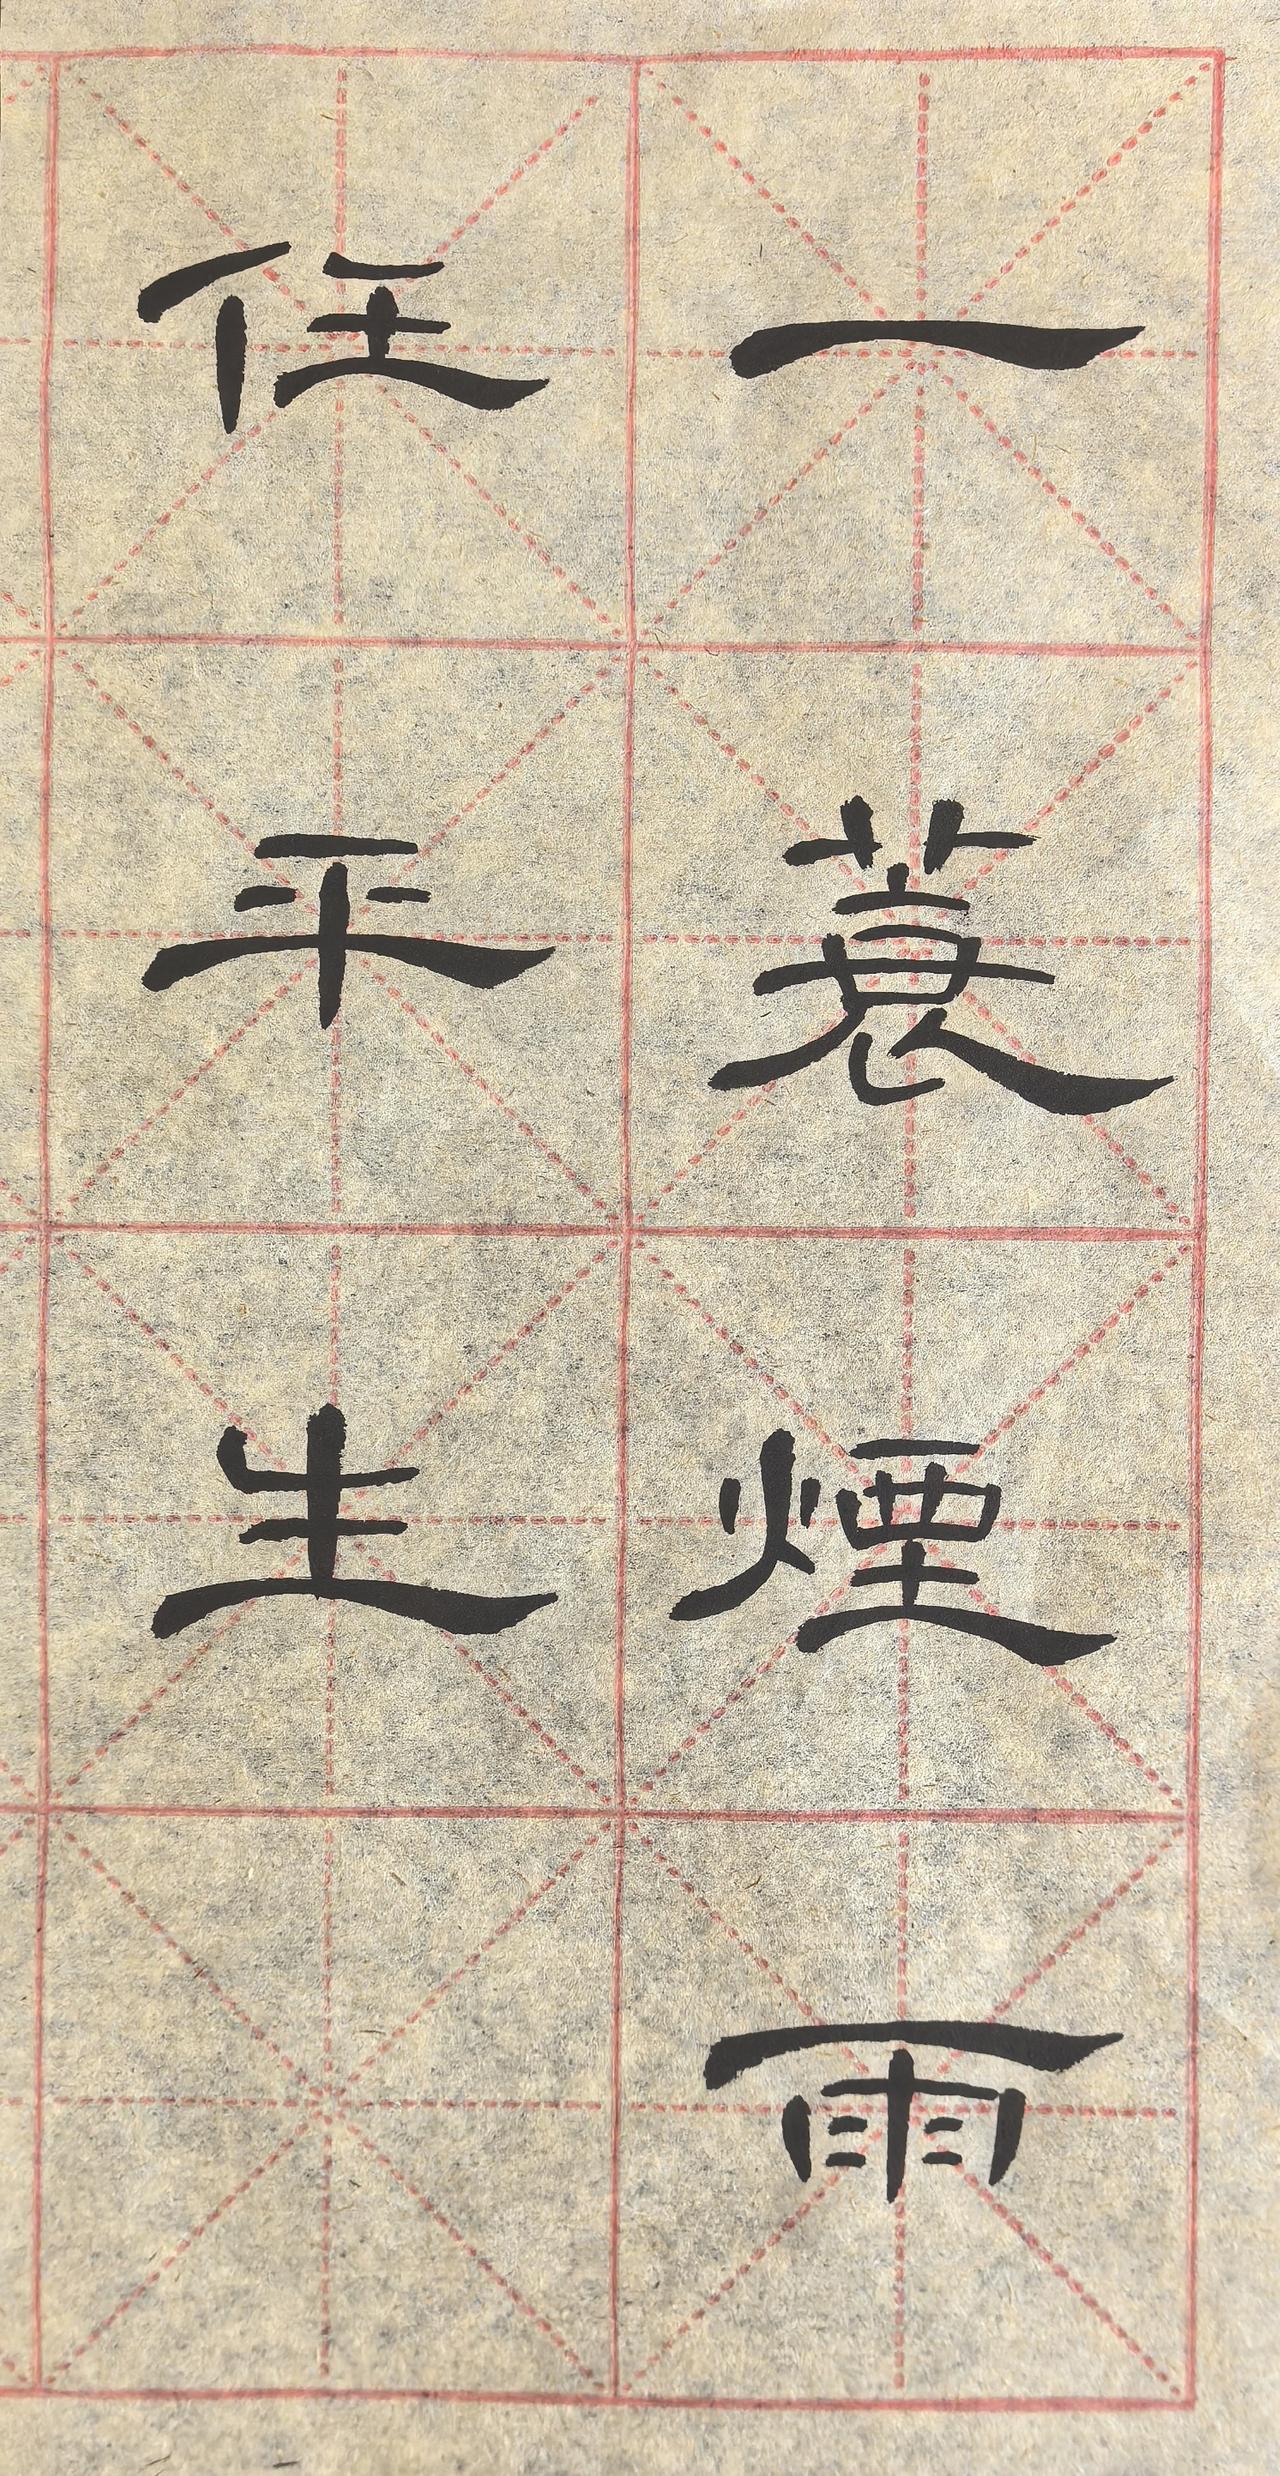 一蓑煙雨
任平生